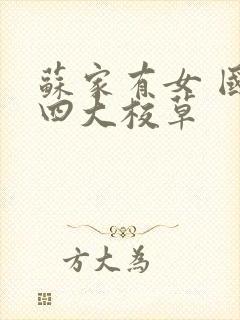 蘇家有女 國
四大校草
方大為